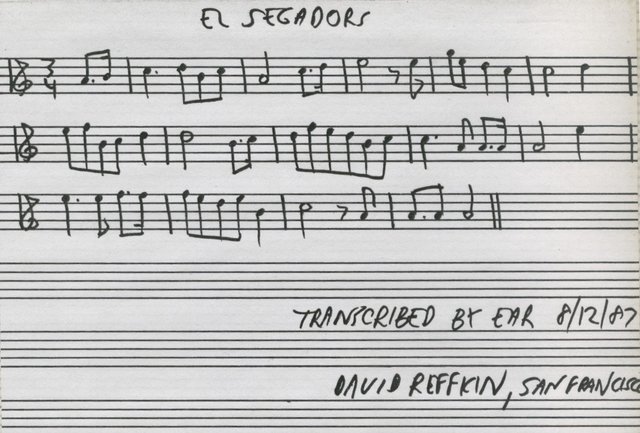 EL SEGADORS
3/4
TRANSCRIBED BY EAR 8/12/87
DAVID REFFKIN, SAN FRANCISCO